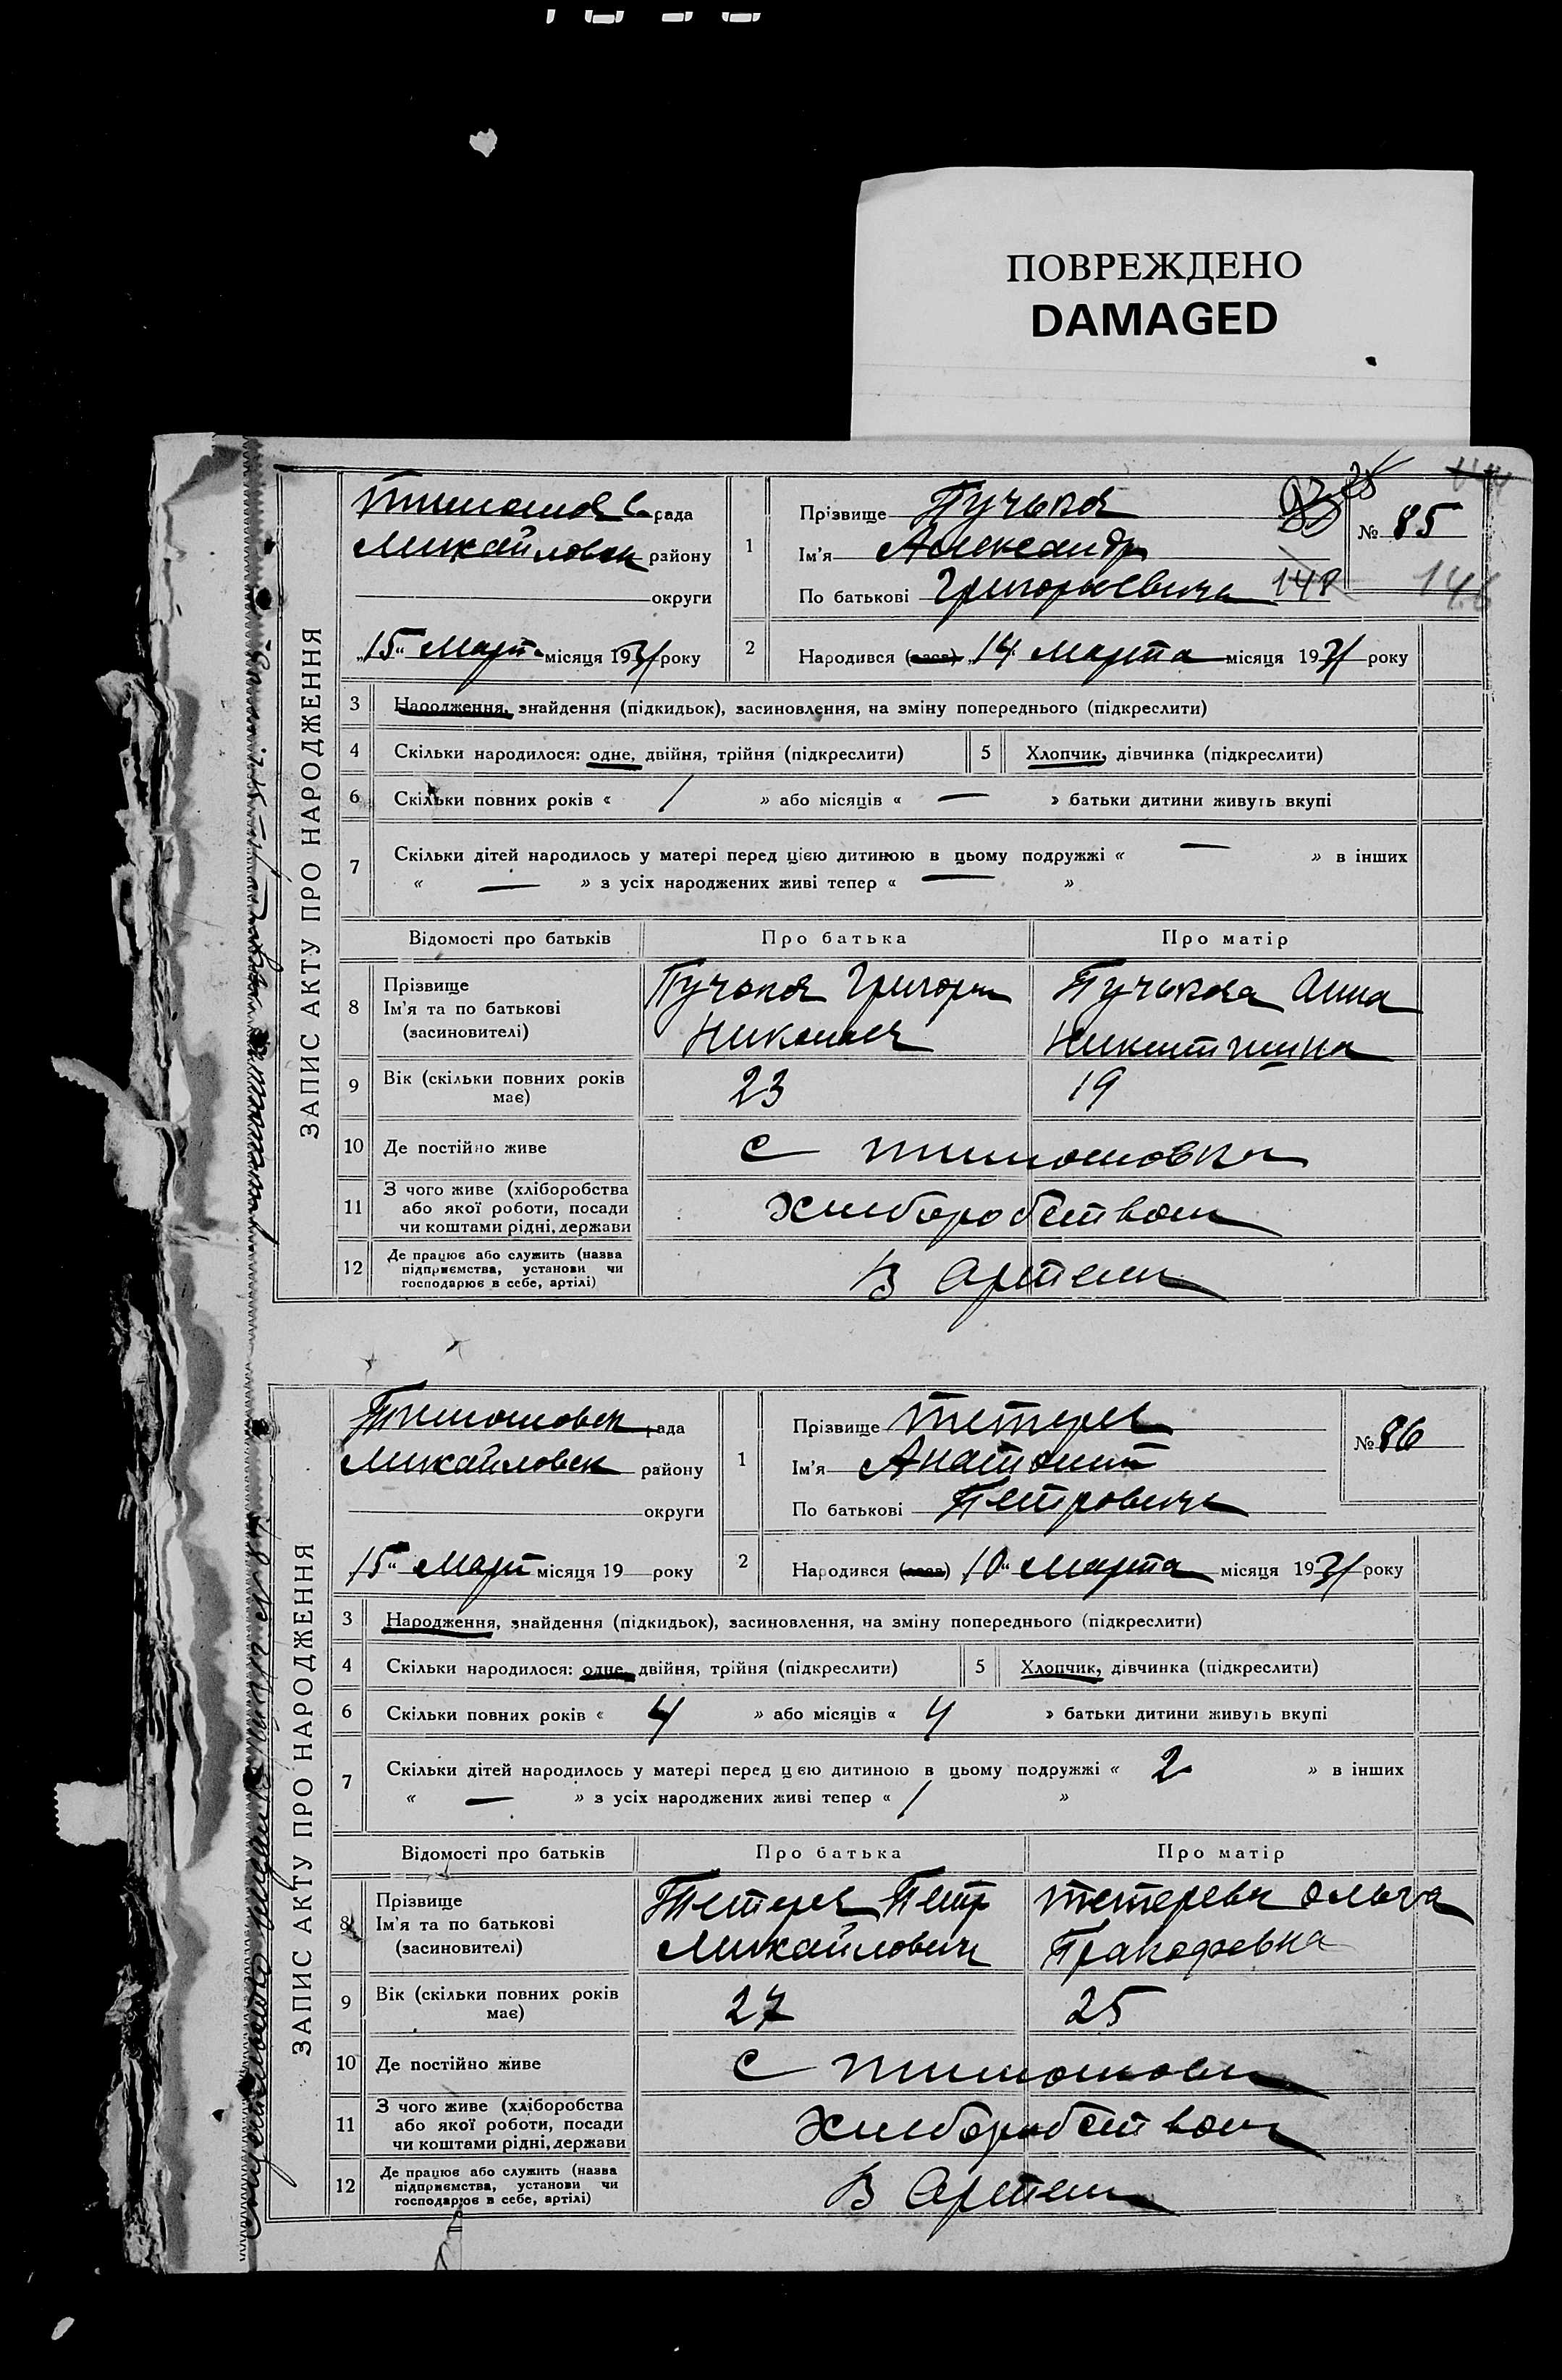 ПОВРЕЖДЕНО
DAMAGED
ЗАПИС АКТУ ПРО НАРОДЖЕННЯ
рада
Михайловск району
округи
„15“ Март місяця 1931 року
1
Прізвище Пучков
Ім'я Александр
По батькові Григорьевич 148
№ 85
146
2
Народився (лась) „14“ Марта місяця 1931 року
3 Народження, знайдення (підкидьок), засиновлення, на зміну попереднього (підкреслити)
4 Скільки народилося: одне, двійня, трійня (підкреслити) 5 Хлопчик, дівчинка (підкреслити)
6 Скільки повних років « 1 » або місяців « — » батьки дитини живуть вкупі
7 Скільки дітей народилось у матері перед цією дитиною в цьому подружжі « — » в інших
« — » з усіх народжених живі тепер « — »
Відомості про батьків Про батька Про матір
8 Прізвище
Ім'я та по батькові
(засиновителі)
Пучков Григори
Николаев
Пучкова Анна
Никитична
9 Вік (скільки повних років має) 23 19
10 Де постійно живе с Тимошовка
11 З чого живе (хліборобства
або якої роботи, посади
чи коштами рідні, держави
Хлиборобством
12 Де працює або служить (назва
підприємства, установи чи
господарює в себе, артілі)
В Артели
ЗАПИС АКТУ ПРО НАРОДЖЕННЯ
Тимошовск рада
Михайловск району
округи
„15“ Март місяця 19 року
1
Прізвище Тетерев
Ім'я Анатолий
По батькові Петрович
№ 86
2
Народився (лась) „10“ Марта місяця 1931 року
3 Народження, знайдення (підкидьок), засиновлення, на зміну попереднього (підкреслити)
4 Скільки народилося: одне, двійня, трійня (підкреслити) 5 Хлопчик, дівчинка (підкреслити)
6 Скільки повних років « 4 » або місяців « 4 » батьки дитини живуть вкупі
7 Скільки дітей народилось у матері перед цією дитиною в цьому подружжі « 2 » в інших
« — » з усіх народжених живі тепер « 1 »
Відомості про батьків Про батька Про матір
8 Прізвище
Ім'я та по батькові
(засиновителі)
Тетерев Петр
Михайлович
Тетерева Ольга
Пракофевна
9 Вік (скільки повних років має) 27 25
10 Де постійно живе с Тимошовк
11 З чого живе (хліборобства
або якої роботи, посади
чи коштами рідні, держави
Хлиборобством
12 Де працює або служить (назва
підприємства, установи чи
господарює в себе, артілі)
В Артели